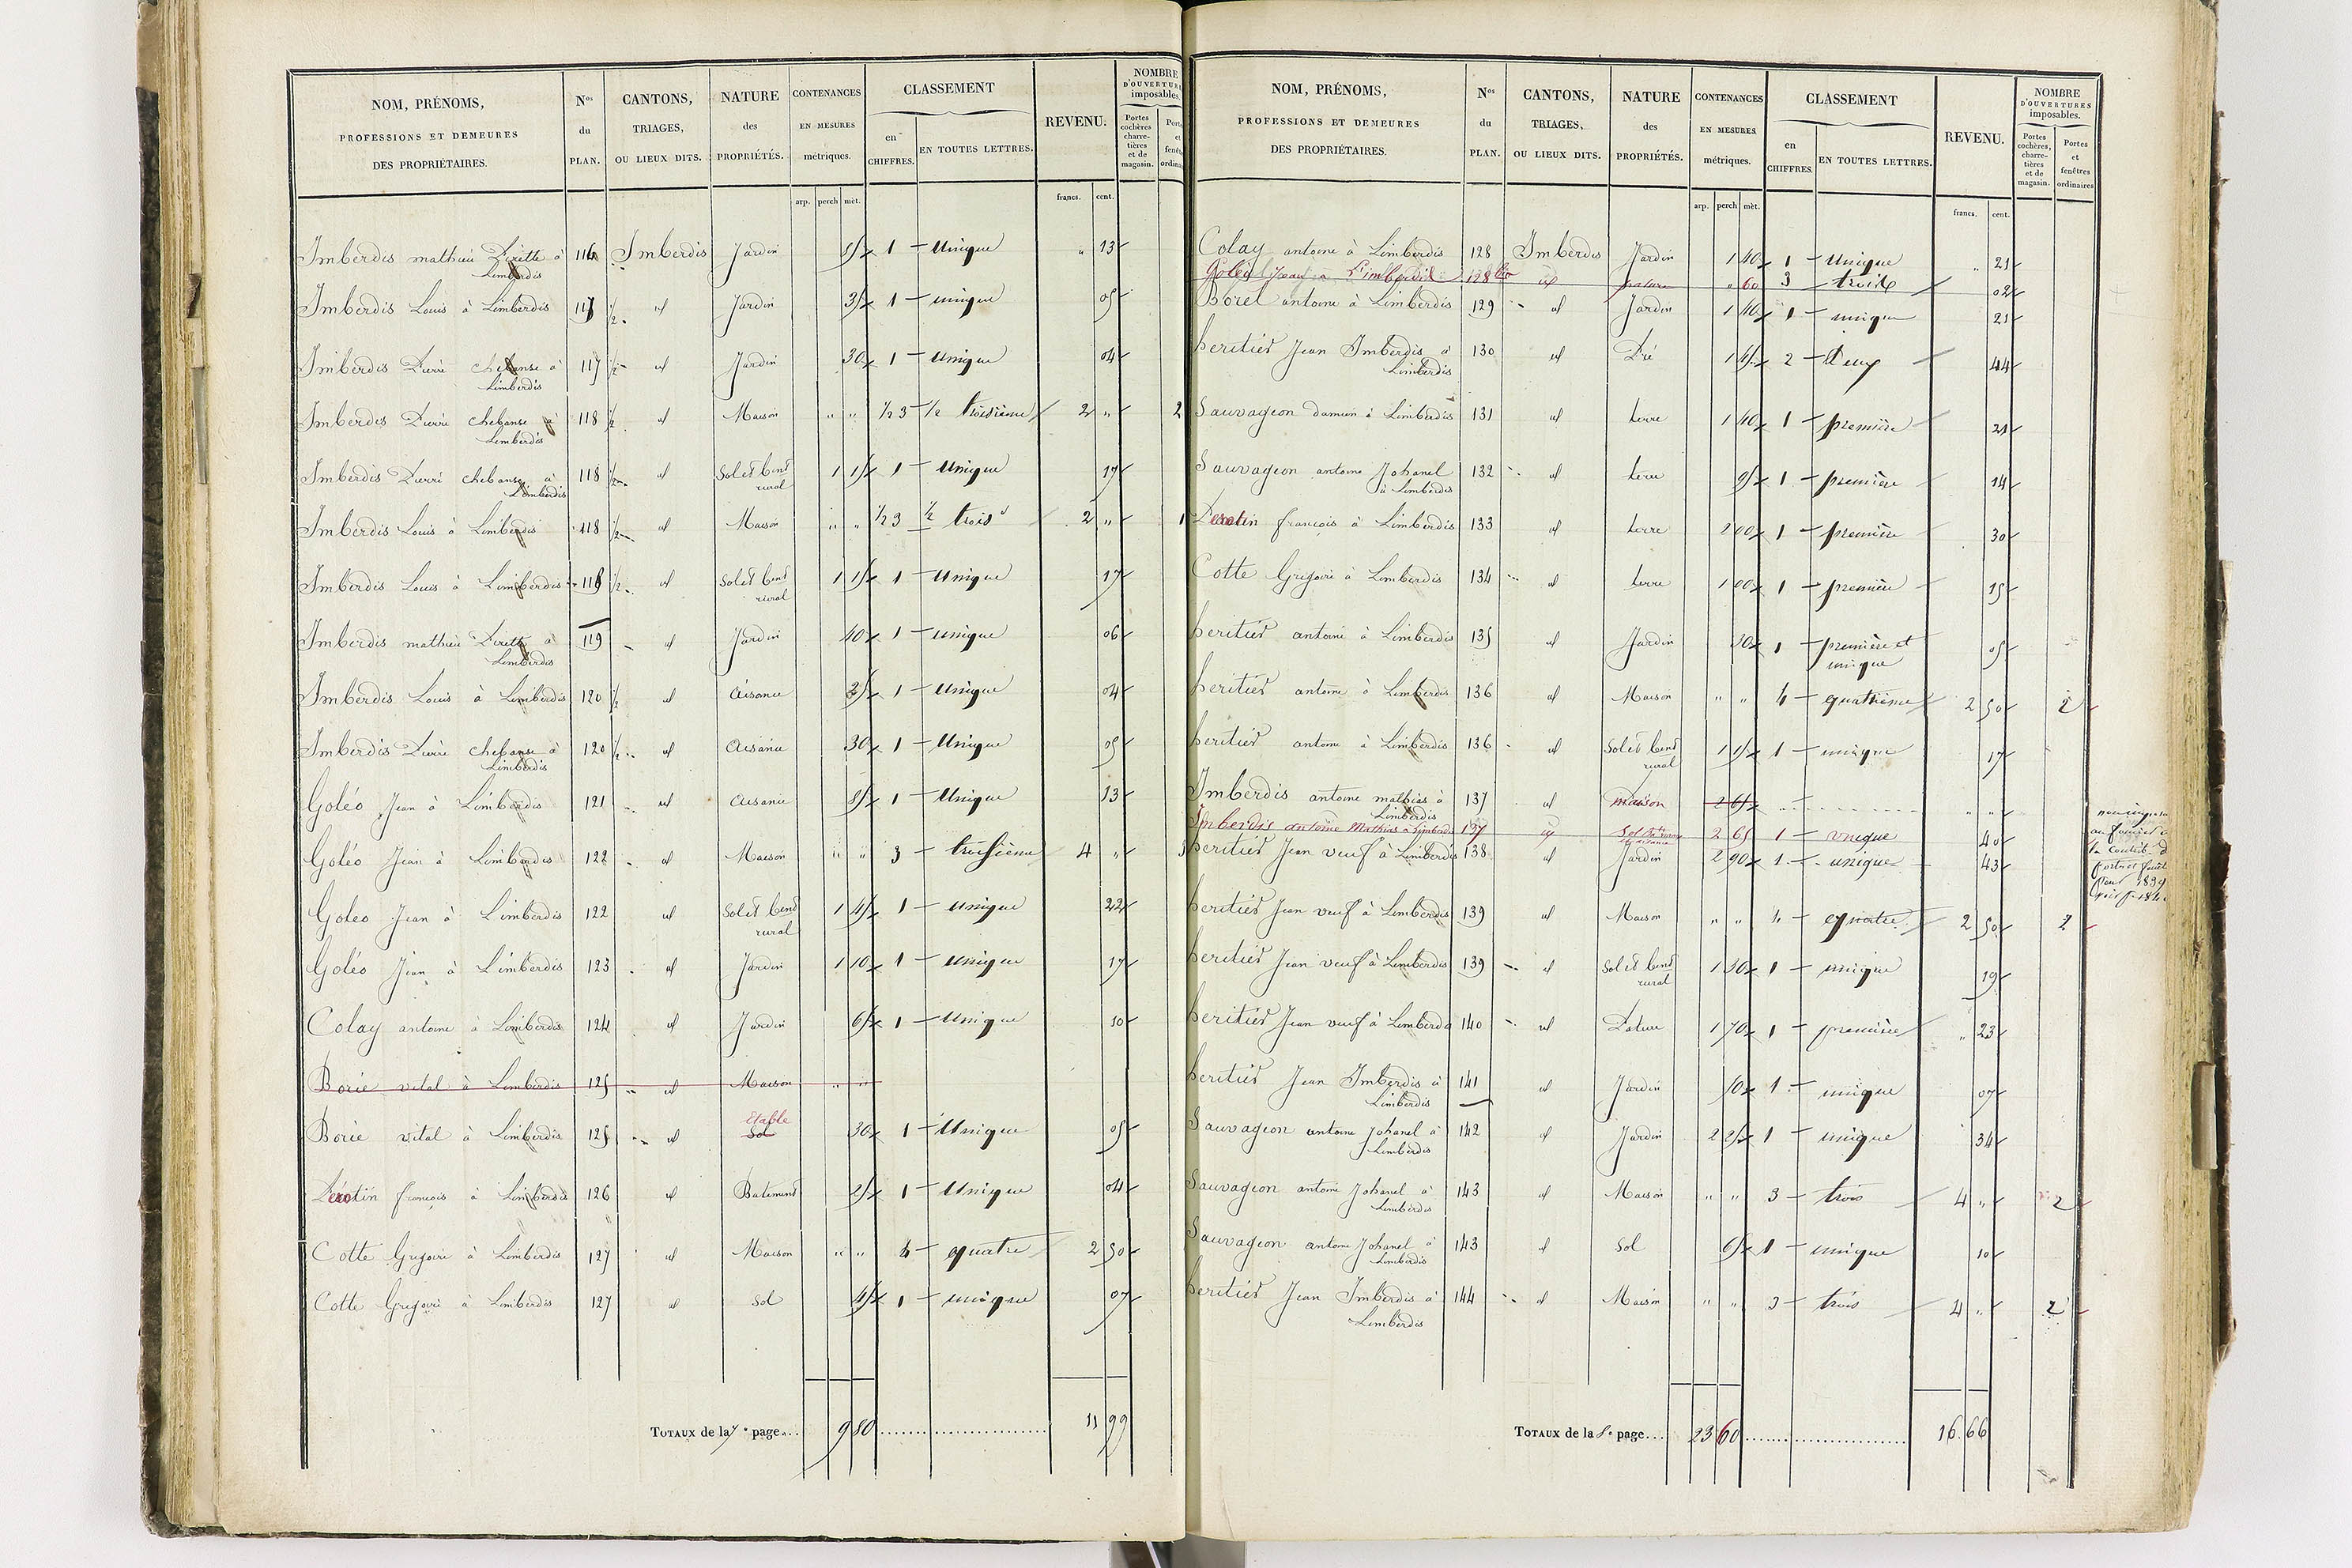 NOM, PRÉNOMS, PROFESSIONS ET DEMEURES DES PROPRIÉTAIRES. Nos du PLAN. CANTONS, TRIAGES, OU LIEUX DITS. NATURE des PROPRIÉTÉS. CONTENANCES EN MESURES métriques. CLASSEMENT en CHIFFRES. EN TOUTES LETTRES. REVENU. NOMBRE D'OUVERTURES imposables. Portes cochères charretières et de magasin.
arp. perch mèt. francs. cent.
Imberdis mathieu à 116 Imberdis Jardin 85 1 Unique " 13
Limberdis
Imberdis Louis à Limberdis 117 1/2 id Jardin 35 1 unique 05
Imberdis Pierre chebanse à 117 1/2 id Jardin 30 1 Unique 04
Limberdis
Imberdis Pierre chebanse à 118 1/2 id Maison " " 1/2 3 1/2 troisième 2 " 2
Limberdis
Imberdis Pierre chebanse à 118 1/2 id Sol et bent 1 15 1 Unique 17
Limberdis rural
Imberdis Louis à Limberdis 118 1/2 id Maison " " 1/2 3 1/2 trois 2 " 1
Imberdis Louis à Limberdis 118 1/2 id Sol et bent 1 15 1 Unique 17
rural
Imberdis mathieu à 119 id Jardin 40 1 unique 06
Limberdis
Imberdis Louis à Limberdis 120 1/2 id Aisance 25 1 Unique 04
Imberdis Pierre chebanse à 120 1/2 id Aisance 30 1 Unique 05
Limberdis
Goléo Jean à Limberdis 121 id Aisance 85 1 Unique 13
Goléo Jean à Limberdis 122 id Maison " " 3 troisième 4 " 3
Goleo Jean à Limberdis 122 id Sol et bent 1 45 1 Unique 22
rural
Goléo Jean à Limberdis 123 id Jardin 1 10 1 Unique 17
Colay antoine à Limberdis 124 id Jardin 65 1 Unique 10
Borie vital à Limberdis 125 id Maison " "
Etable
Borie vital à Limberdis 125 id Sol 30 1 Unique 05
Lérotin françois à Limberdis 126 id Batiment 25 1 Unique 04
Cotte Grégoire à Limberdis 127 id Maison " " 4 quatre 2 50
Cotte Grégoire à Limberdis 127 id Sol 45 1 unique 07
TOTAUX de la 7e page... 9 80 11 99
NOM, PRÉNOMS, PROFESSIONS ET DEMEURES DES PROPRIÉTAIRES. Nos du PLAN. CANTONS, TRIAGES, OU LIEUX DITS. NATURE des PROPRIÉTÉS. CONTENANCES EN MESURES métriques. CLASSEMENT en CHIFFRES. EN TOUTES LETTRES. REVENU. NOMBRE D'OUVERTURES imposables. Portes cochères, charretières et de magasin. Portes et fenêtres ordinaires
arp. perch mèt. francs. cent.
Colay antoine à Limberdis 128 Imberdis Jardin 1 40 1 Unique " 21
Goléo Jean à Limberdis 128 bis id pature " 60 3 trois 02
Borel antoine à Limberdis 129 id Jardin 1 40 1 unique 21
heritier Jean Imberdis à 130 id Pré 1 45 2 Deux 44
Limberdis
Sauvageon damien à Limberdis 131 id terre 1 40 1 première 21
Sauvageon antoine Johanel 132 id terre 95 1 première 14
à Limberdis
Lerotin françois à Limberdis 133 id terre 2 00 1 première 30
Cotte Grégoire à Limberdis 134 id terre 1 00 1 première 15
heritier antoine à Limberdis 135 id Jardin 30 1 première et 05
unique
heritier antoine à Limberdis 136 id Maison " " 4 quatrième 2 50 2
heritier antoine à Limberdis 136 id Sol et bent 1 15 1 unique 17
rural
Imberdis antoine mathias à 137 id maison 2 65 " "
Limberdis
Imberdis antoine Mathias à Limberdis 137 id Sol 2 65 1 unique 40
heritier Jean veuf à Limberdis 138 id Jardin 2 90 1 unique 43
heritier Jean veuf à Limberdis 139 id Maison " " 4 quatre 2 50 2
heritier Jean veuf à Limberdis 139 id Sol et bent 1 30 1 unique 19
rural
heritier Jean veuf à Limberdis 140 id Pature 1 70 1 première " 23
heritier Jean Imberdis à 141 id Jardin 50 1 unique 07
Limberdis
Sauvageon antoine Johanel à 142 id Jardin 2 25 1 unique 34
Limberdis
Sauvageon antoine Johanel à 143 id Maison " " 3 trois 4 " 2
Limberdis
Sauvageon antoine Johanel à 143 id Sol 65 1 unique 10
Limberdis
heritier Jean Imberdis à 144 id Maison " " 3 trois 4 " 2
Limberdis
TOTAUX de la 8e page... 23 60 16 66